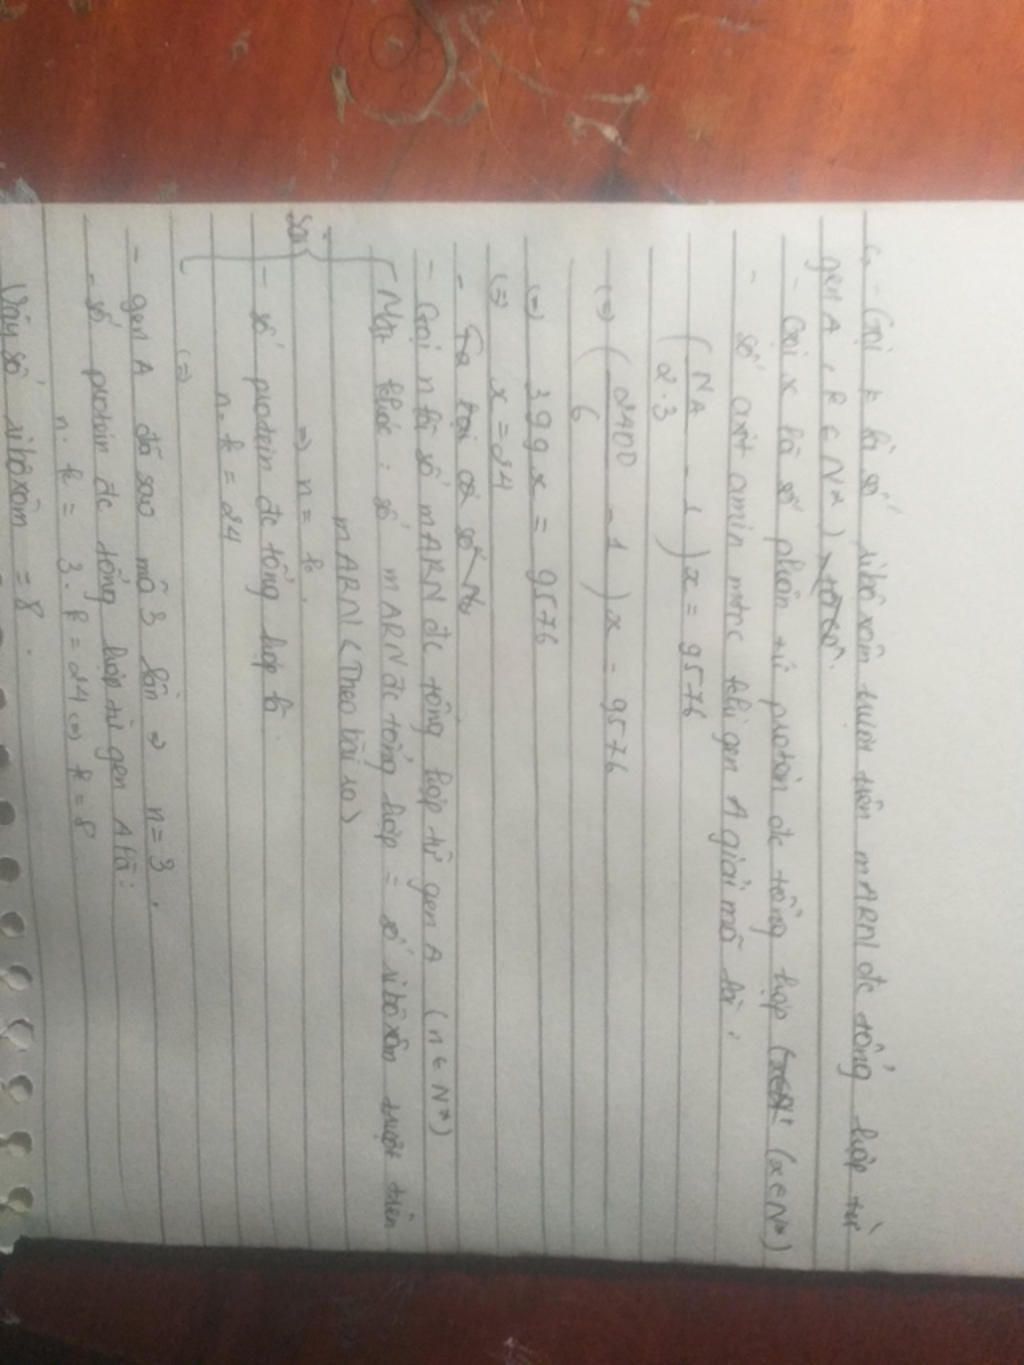 c, - Gọi k là số ribôxôm trượt trên mARN đc tổng hợp từ
gen A, k ∈ N*)
- Gọi x là số phân tử protein đc tổng hợp (x ∈ N*)
- số axit amin mtnc khi gen A giải mã là :
(NA / 2.3 - 1) x = 9576
(=) (2400 / 6 - 1) x = 9576
(=) 399 x = 9576
(=) x = 24
- Ta lại có số Nu
- Gọi n là số mARN đc tổng hợp từ gen A (n ∈ N*)
Mặt khác : số mARN đc tổng hợp = số ribôxôm trượt trên
mARN (Theo bài ra)
=) n = k.
Sai
- số protein đc tổng hợp là
n. k = 24
(=)
- gen A đã sao mã 3 lần => n = 3.
- số protein đc tổng hợp từ gen A là :
n. k = 3. k = 24 (=) k = 8.
Vậy số ribôxôm = 8.